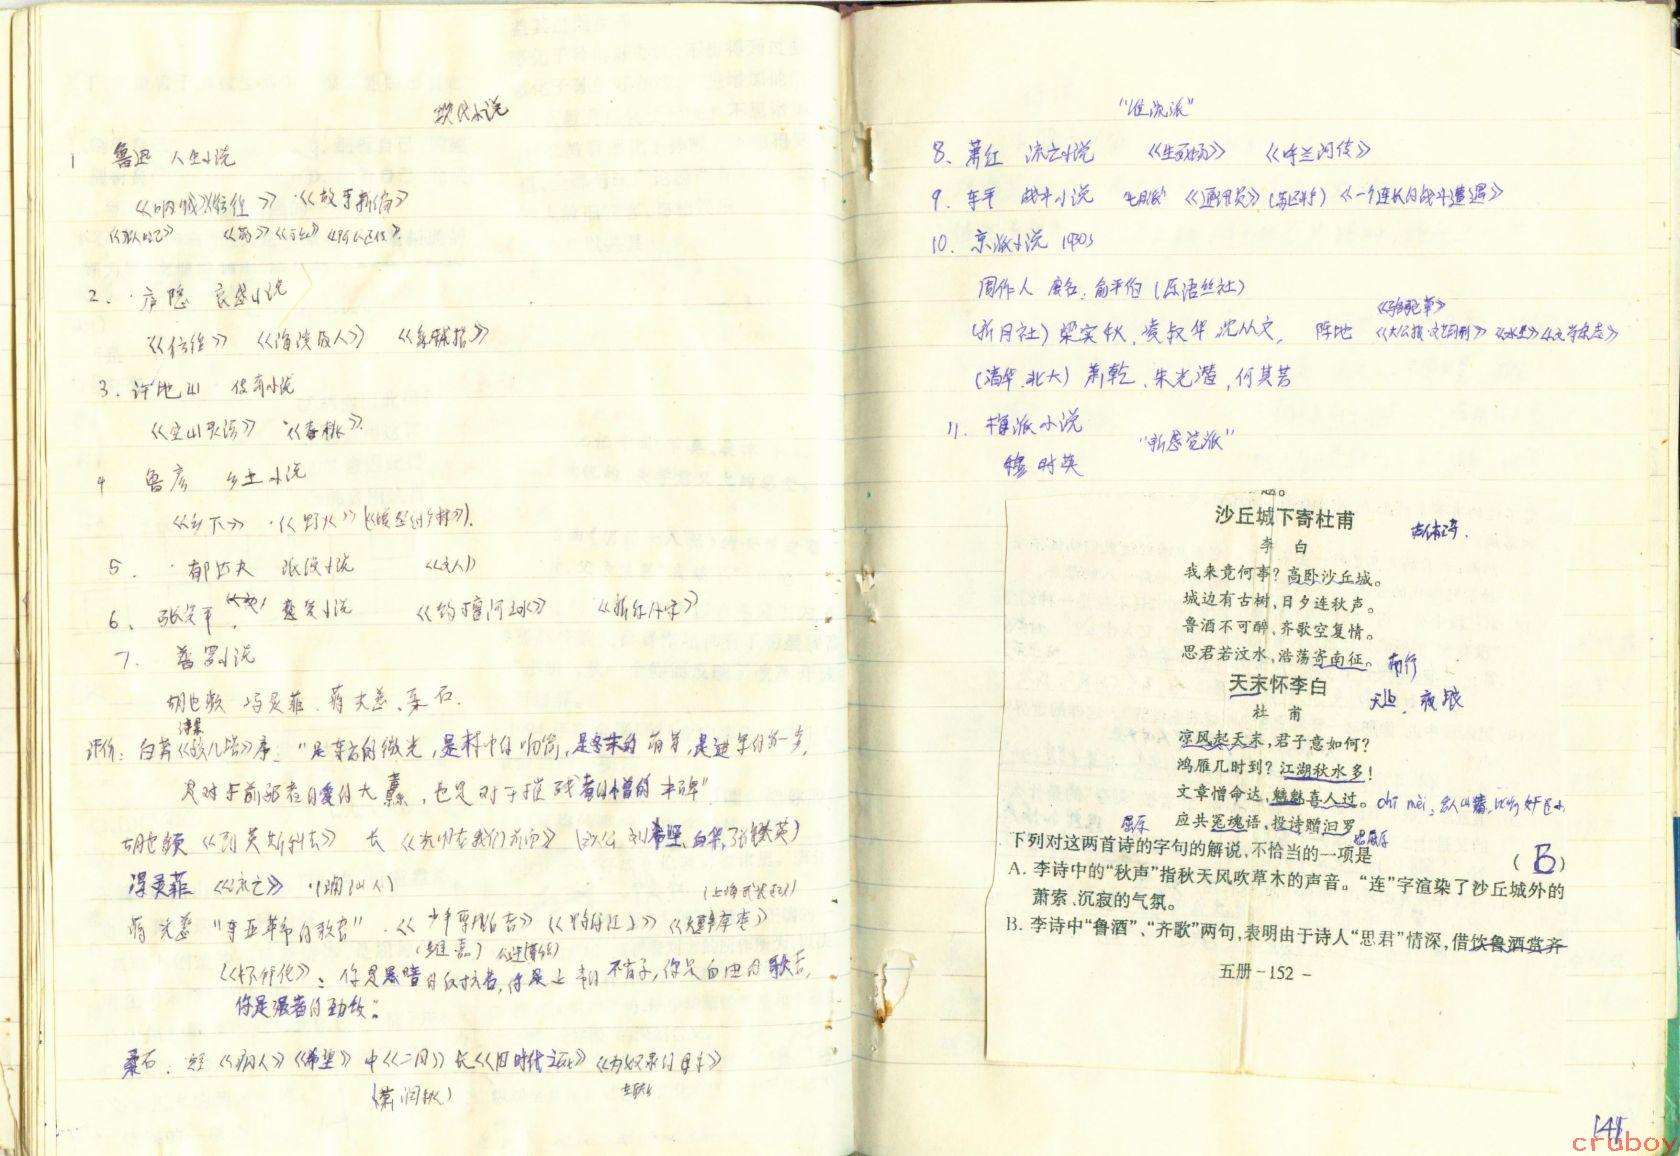 现代小说
1 鲁迅 人生小说
《呐喊》《彷徨》·《故事新编》
《狂人日记》 《药》 《阿Q正传》
2. ·庐隐 哀怨小说
《彷徨》 《海滨故人》 《象牙戒指》
3. 许地山 传奇小说
《空山灵雨》 ·《春桃》
4 鲁彦 乡土小说
《乡下》 ·《野火》
5. ·郁达夫 浪漫小说
6. 张资平 恋爱小说 《约檀河水》
7. 普罗小说
胡也频 冯灵菲 蒋光慈、柔石.
诗集
评价: 白莽《孩儿塔》序: "是东方的微光,是林中的响箭,是冬末的萌芽,是进军的第一步,
是对于前驱者的爱的大纛,也是对于摧残者的憎的丰碑"
胡也频 《到莫斯科去》 长 《光明在我们前面》 (刘希坚, 白华, 张铁英)
冯灵菲 《流亡》
(上海武装起义)
蒋光慈 "东亚革命的歌者" ·《少年飘泊者》
你是黑暗的反抗者,你是上帝的不肖子,你是自由的歌者,
你是强者的劲敌.
柔石: 短 《病人》《希望》 中《二月》 长《旧时代之死》 《为奴隶的母亲》
(萧涧秋)
8、萧红 流亡小说 《生死场》 《呼兰河传》
9. 战斗小说 七月派 《通讯员》 《一个连长的战斗遭遇》
10. 京派小说 1930s
周作人 废名. 俞平伯 (原语丝社)
《骆驼草》
(新月社) 梁实秋, 凌叔华 沈从文, 阵地 《大公报·文艺副刊》 《水星》《文学杂志》
(清华、北大) 萧乾、朱光潜, 何其芳
11. 海派小说
"新感觉派"
穆时英
沙丘城下寄杜甫
古体诗.
李 白
我来竟何事?高卧沙丘城。
城边有古树,日夕连秋声。
鲁酒不可醉,齐歌空复情。
思君若汶水,浩荡寄南征。 南行
天末怀李白
杜 甫
凉风起天末,君子意如何?
鸿雁几时到?江湖秋水多!
文章憎命达,魑魅喜人过。 chī mèi:
屈原
应共冤魂语,投诗赠汨罗
下列对这两首诗的字句的解说,不恰当的一项是 ( B )
A. 李诗中的“秋声”指秋天风吹草木的声音。“连”字渲染了沙丘城外的
萧索、沉寂的气氛。
B. 李诗中“鲁酒”、“齐歌”两句,表明由于诗人“思君”情深,借饮鲁酒赏齐
五册-152-
141
cruboy